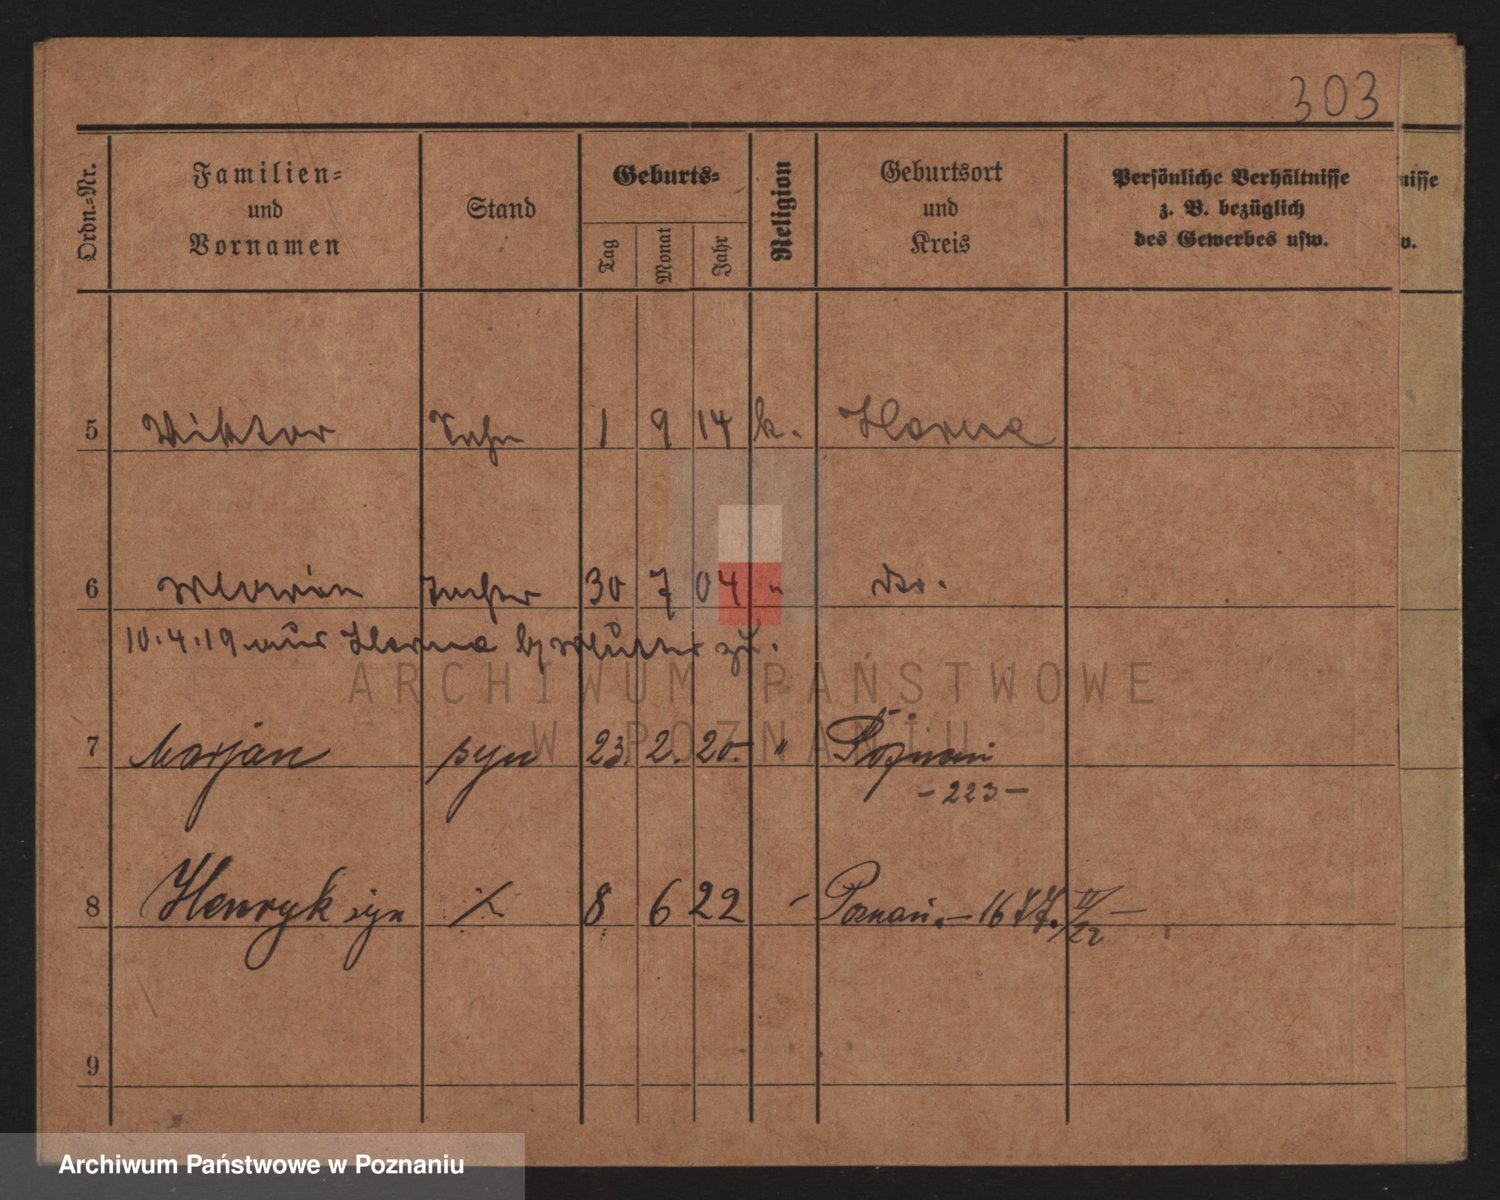 303
Ordn.-Nr.
Familien-
und
Vornamen
Stand
Geburts-
Tag
Monat
Jahr
Religion
Geburtsort
und
Kreis
Persönliche Verhältnisse
z. B. bezüglich
des Gewerbes usw.
nisse
w.
5 Viktor Sohn 1 9 14 k. Herne
6 30 7 04 "
10.4.19 aus Herne Mutter zu.
ARCHIWUM PAŃSTWOWE
W POZNANIU
7 Marjan syn 23. 2. 20. " Poznań
- 223 -
8 Henryk syn 8 6 22 Poznań. - 1677. IV/22 -
9
Archiwum Państwowe w Poznaniu